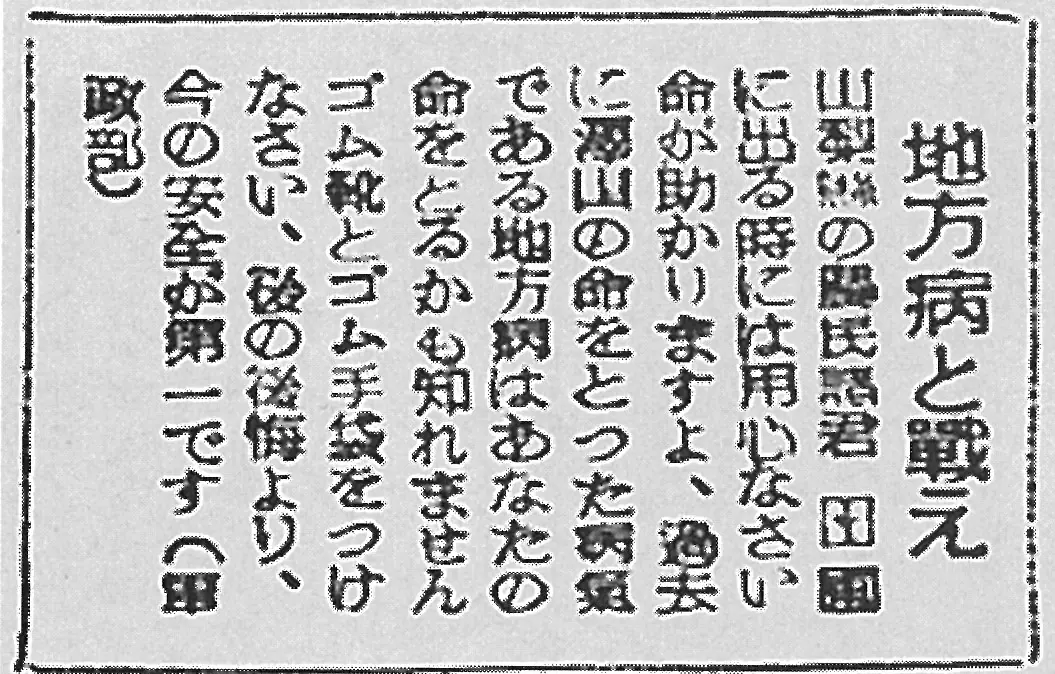 地方病と戰え
山梨縣の農民諸君　田圃
に出る時には用心なさい
命が助かりますよ、過去
に澤山の命をとつた病氣
である地方病はあなたの
命をとるかも知れません
ゴム靴とゴム手袋をつけ
なさい、後の後悔より、
今の安全が第一です（軍
政部）